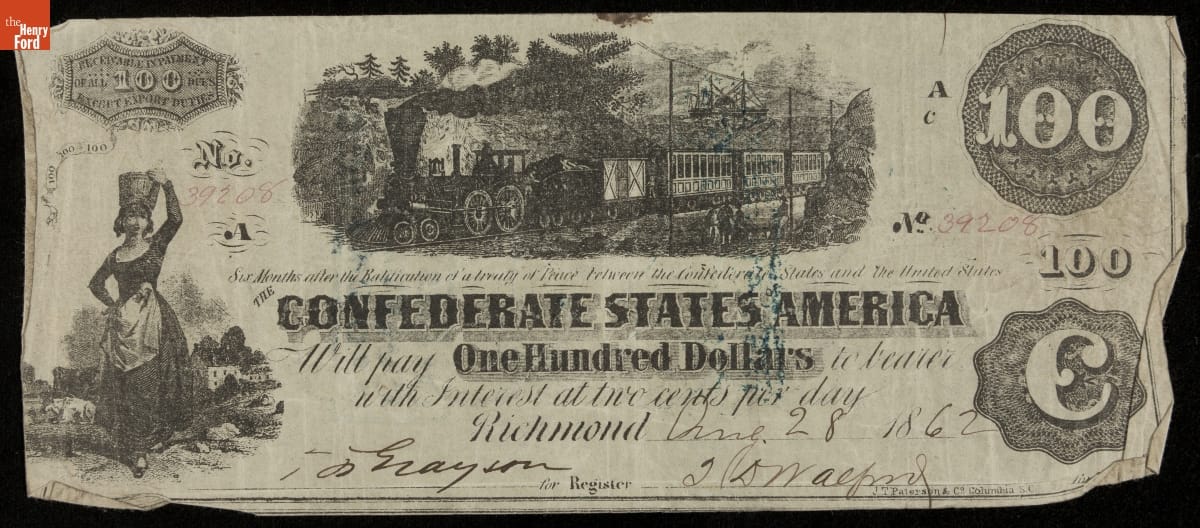 the
Henry
Ford
RECEIVABLE IN PAYMENT
OF ALL 100 DUES
EXCEPT EXPORT DUTIES
100 100 100
100
100
No.
39208
A
A
C
100
No. 39208
100
Six Months after the Ratification of a treaty of Peace between the Confederate States and the United States
THE
CONFEDERATE STATES OF AMERICA
Will pay One Hundred Dollars to bearer
with Interest at two cents per day
Richmond Aug. 28 1862
C
Grayson
for Register
J. T. Paterson & Co. Columbia S.C.